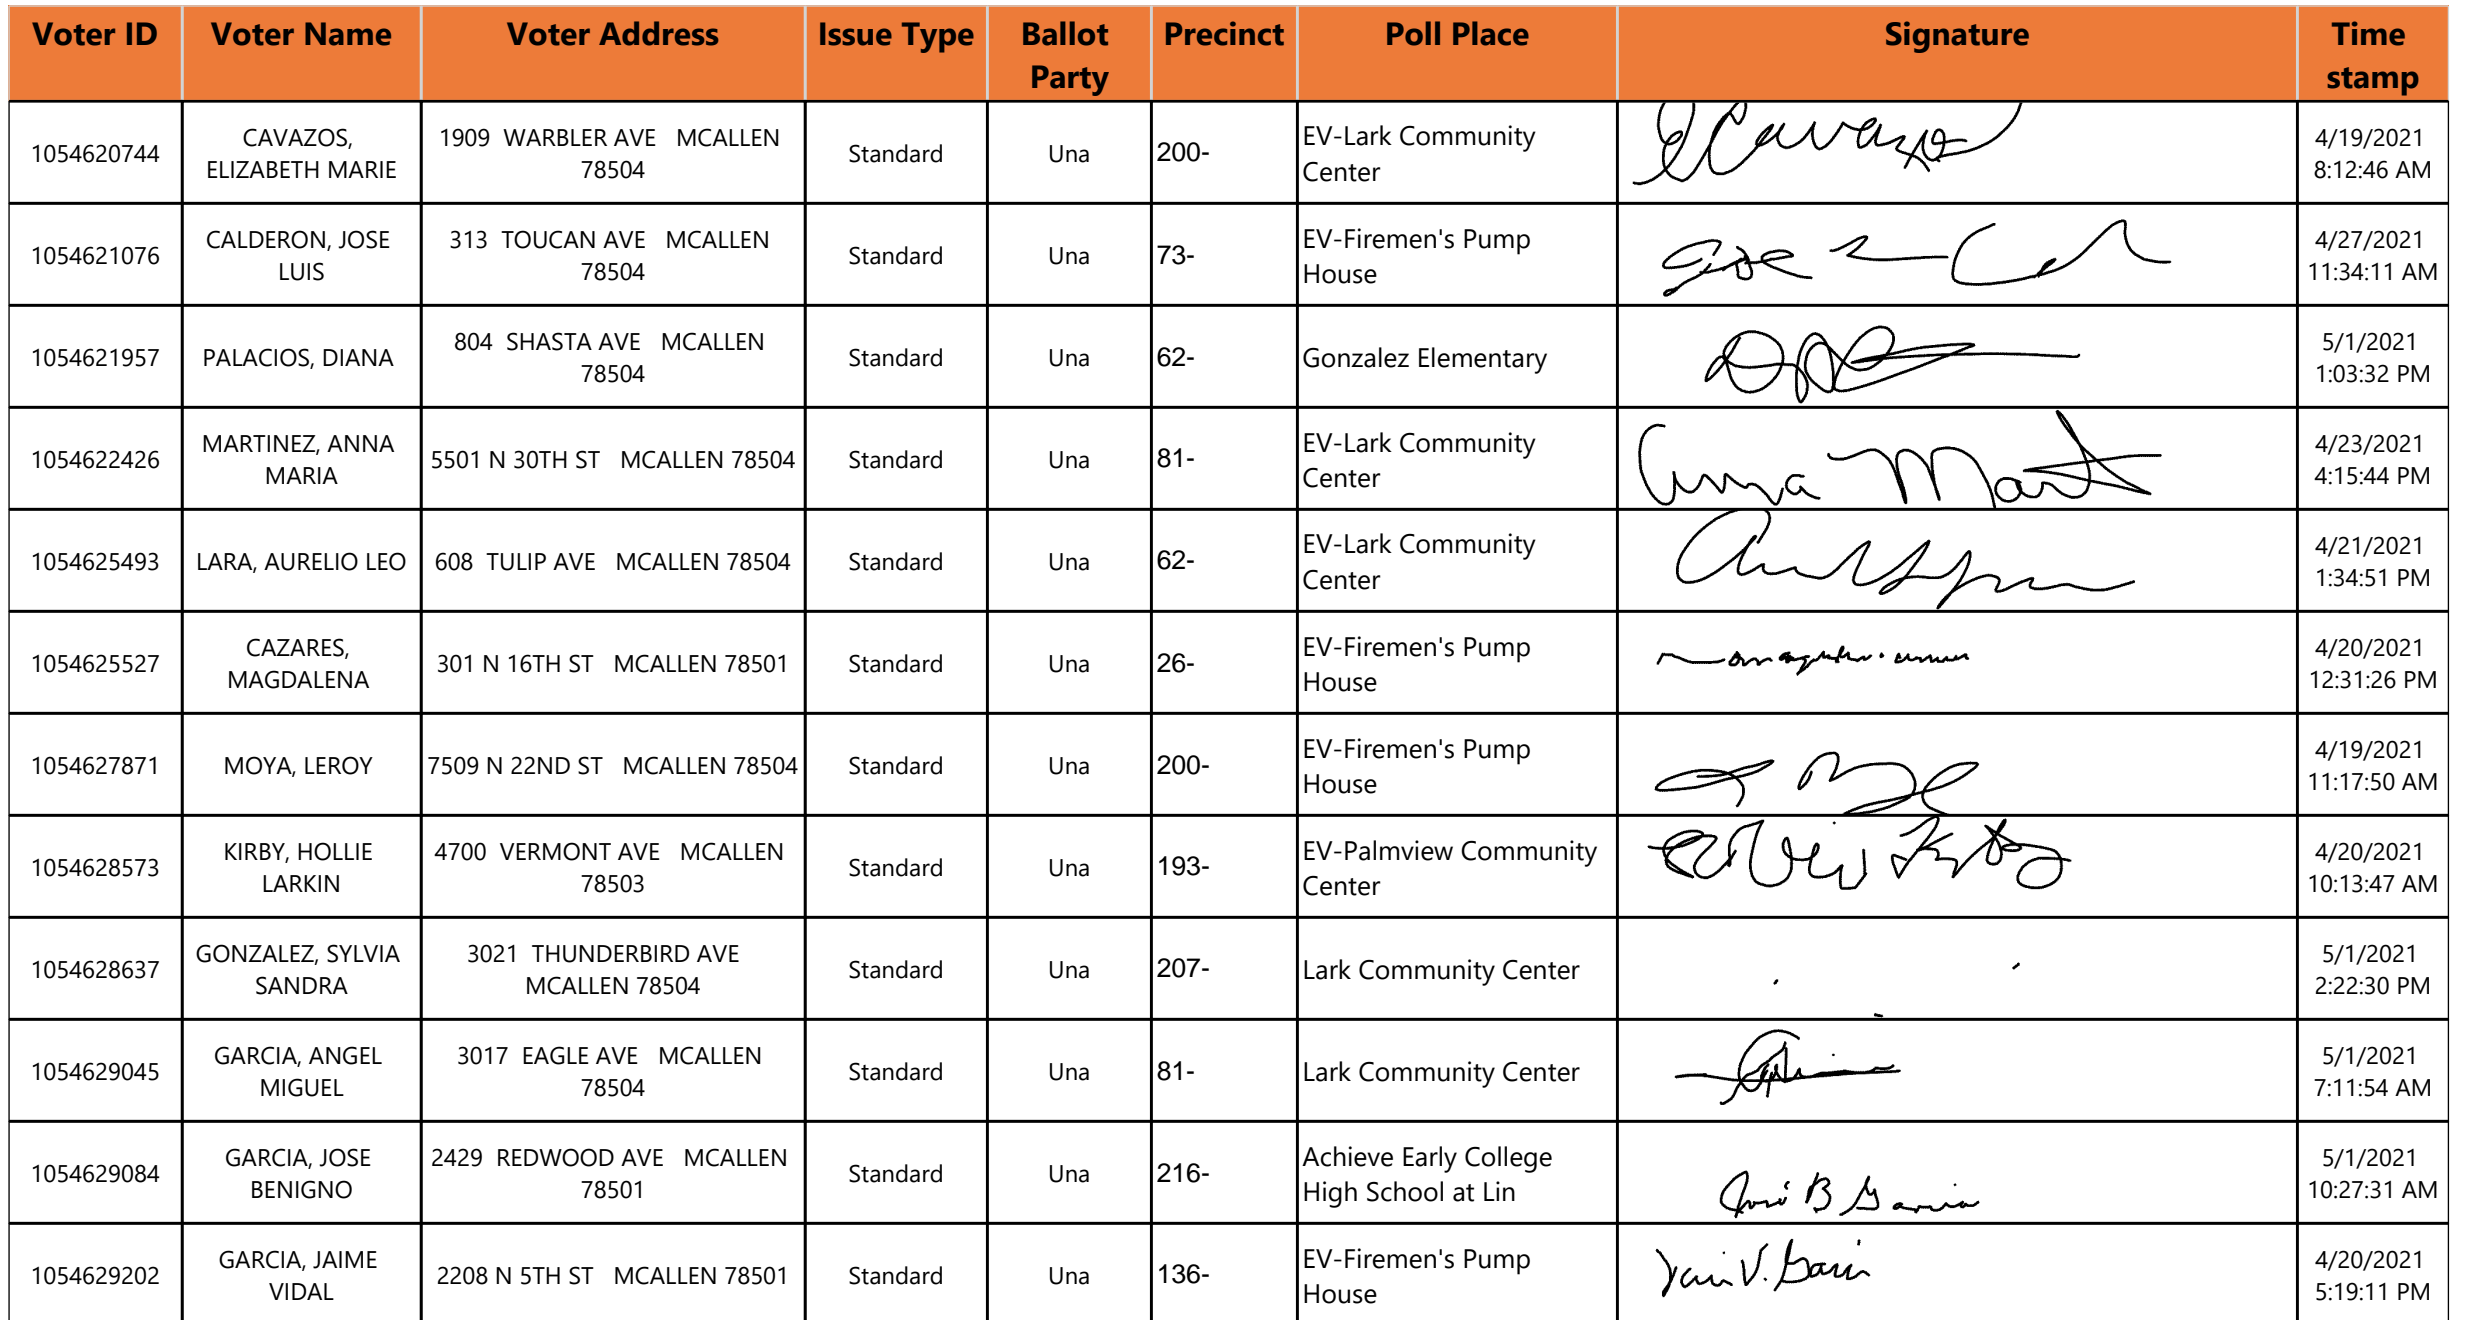 Voter ID Voter Name Voter Address Issue Type Ballot Party Precinct Poll Place Signature Time stamp
1054620744 CAVAZOS, ELIZABETH MARIE 1909 WARBLER AVE MCALLEN 78504 Standard Una 200- EV-Lark Community Center 4/19/2021 8:12:46 AM
1054621076 CALDERON, JOSE LUIS 313 TOUCAN AVE MCALLEN 78504 Standard Una 73- EV-Firemen's Pump House 4/27/2021 11:34:11 AM
1054621957 PALACIOS, DIANA 804 SHASTA AVE MCALLEN 78504 Standard Una 62- Gonzalez Elementary 5/1/2021 1:03:32 PM
1054622426 MARTINEZ, ANNA MARIA 5501 N 30TH ST MCALLEN 78504 Standard Una 81- EV-Lark Community Center Anna Mart 4/23/2021 4:15:44 PM
1054625493 LARA, AURELIO LEO 608 TULIP AVE MCALLEN 78504 Standard Una 62- EV-Lark Community Center 4/21/2021 1:34:51 PM
1054625527 CAZARES, MAGDALENA 301 N 16TH ST MCALLEN 78501 Standard Una 26- EV-Firemen's Pump House 4/20/2021 12:31:26 PM
1054627871 MOYA, LEROY 7509 N 22ND ST MCALLEN 78504 Standard Una 200- EV-Firemen's Pump House 4/19/2021 11:17:50 AM
1054628573 KIRBY, HOLLIE LARKIN 4700 VERMONT AVE MCALLEN 78503 Standard Una 193- EV-Palmview Community Center 4/20/2021 10:13:47 AM
1054628637 GONZALEZ, SYLVIA SANDRA 3021 THUNDERBIRD AVE MCALLEN 78504 Standard Una 207- Lark Community Center 5/1/2021 2:22:30 PM
1054629045 GARCIA, ANGEL MIGUEL 3017 EAGLE AVE MCALLEN 78504 Standard Una 81- Lark Community Center 5/1/2021 7:11:54 AM
1054629084 GARCIA, JOSE BENIGNO 2429 REDWOOD AVE MCALLEN 78501 Standard Una 216- Achieve Early College High School at Lin José B Garcia 5/1/2021 10:27:31 AM
1054629202 GARCIA, JAIME VIDAL 2208 N 5TH ST MCALLEN 78501 Standard Una 136- EV-Firemen's Pump House 4/20/2021 5:19:11 PM